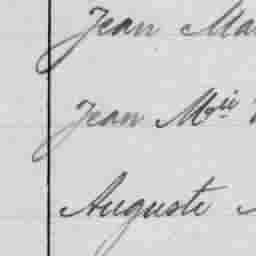 Jean Ma
Jean Mrii
Auguste